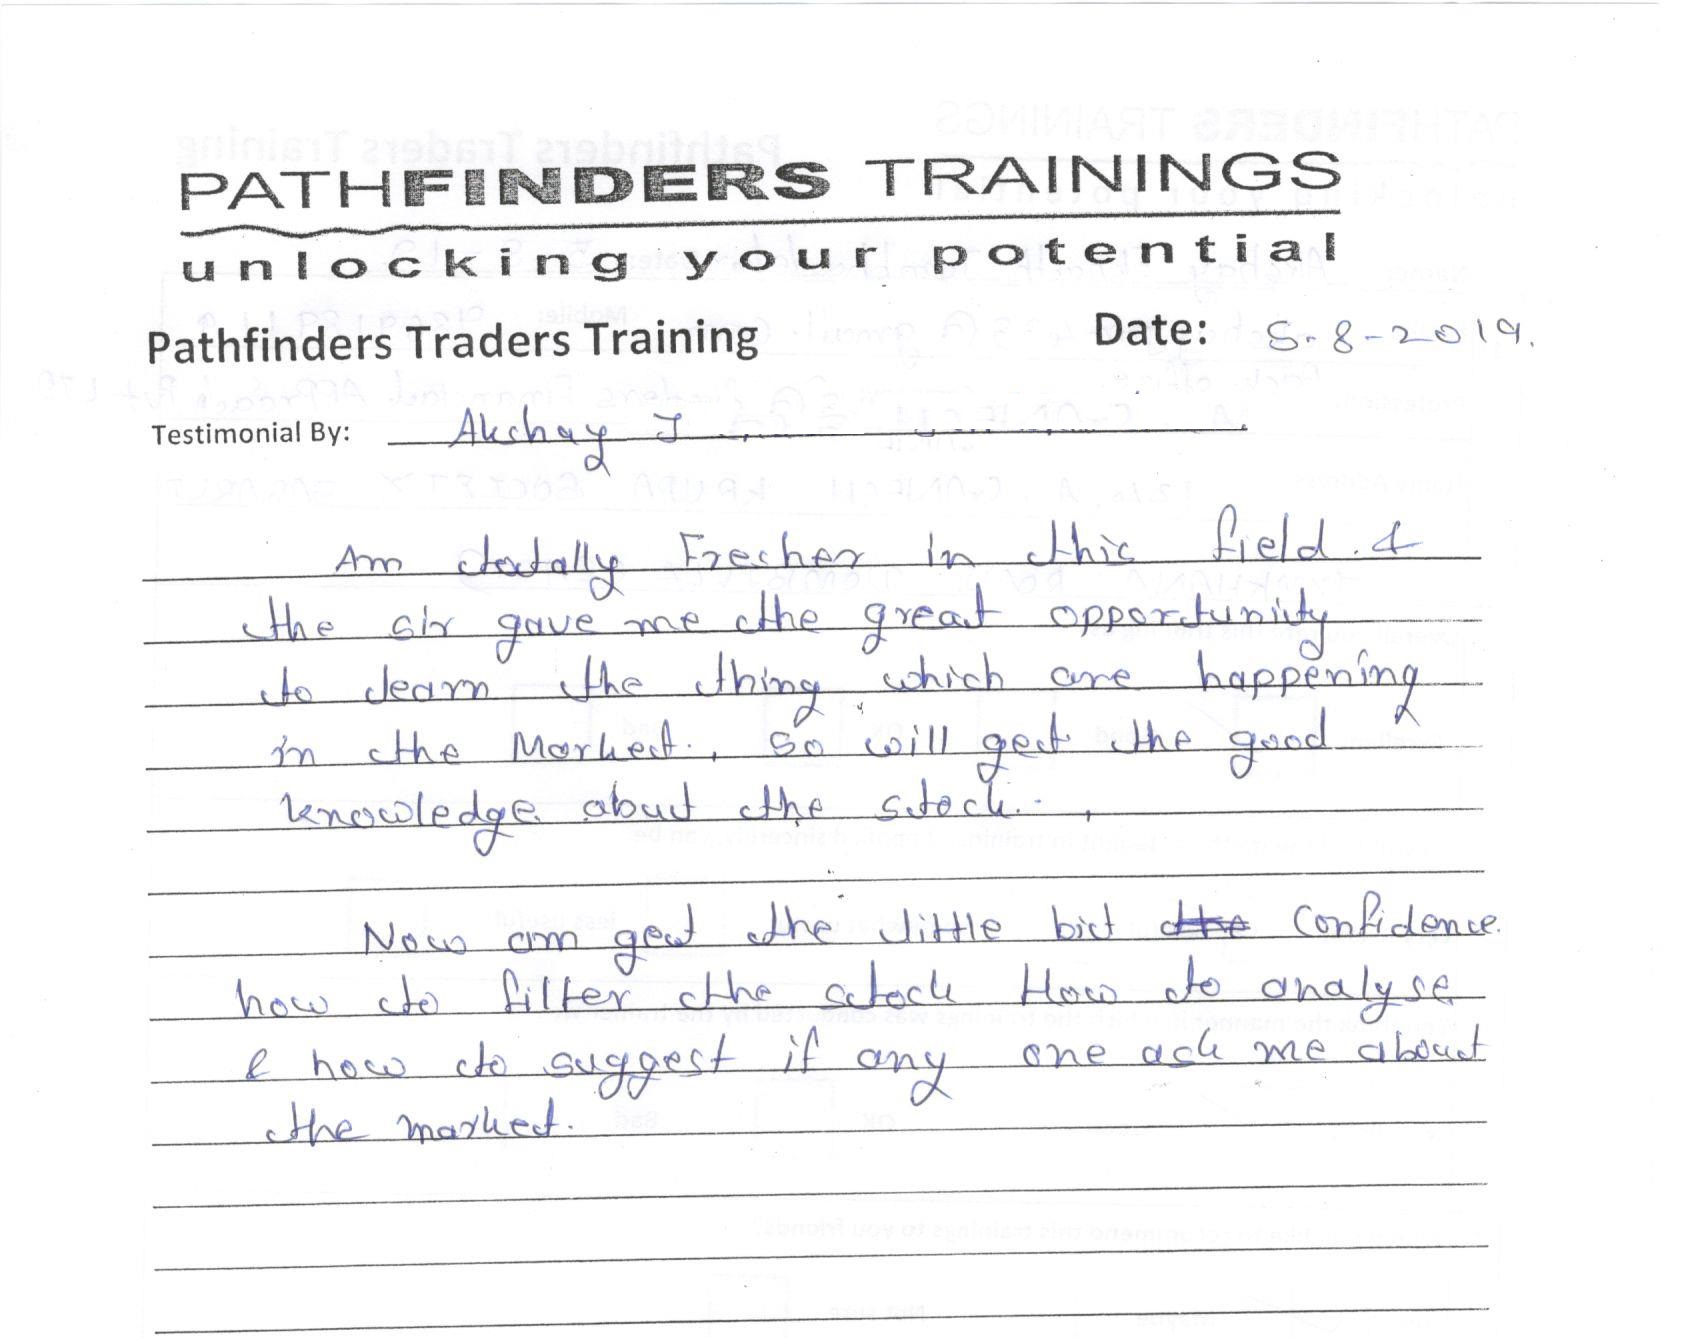 PATHFINDERS TRAININGS
unlocking your potential
Pathfinders Traders Training Date: 5-8-2019.
Testimonial By: Akshay J
Am totally Fresher in this field. &
the sir gave me the great opportunity
to learn the thing which are happening
in the Market., so will get the good
knowledge about the stock.
Now am get the little bit the Confidence.
how to filter the stock How to analyse
& how to suggest if any one ask me about
the market.